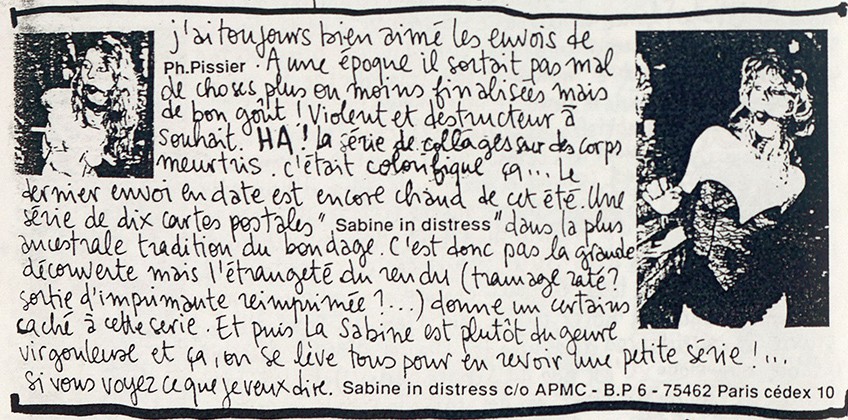 j'ai toujours bien aimé les envois de
Ph.Pissier. A une époque il sortait pas mal
de choses plus ou moins finalisées mais
de bon goût ! Violent et destructeur à
souhait. HA ! la série de collages sur des corps
meurtris. c'était colorifique ça... Le
dernier envoi en date est encore chaud de cet été. Une
série de dix cartes postales " Sabine in distress " dans la plus
ancestrale tradition du bondage. C'est donc pas la grande
découverte mais l'étrangeté du rendu (tramage raté ?
sortie d'imprimante réimprimée ?...) donne un certains
caché à cette serie. Et puis la Sabine est plutôt du genre
virgouleuse et ça, on se lève tous pour en revoir une petite série !...
Si vous voyez ce que je veux dire. Sabine in distress c/o APMC - B.P 6 - 75462 Paris cédex 10